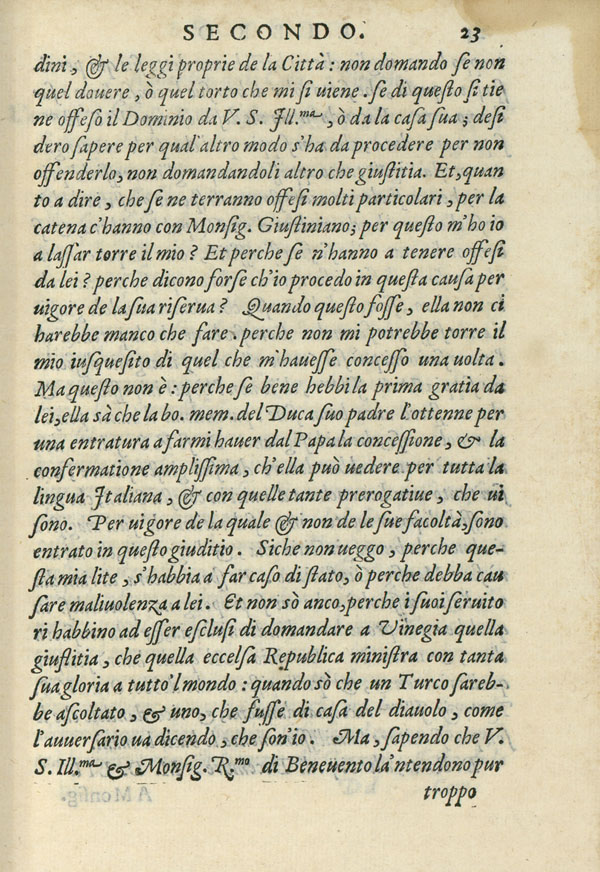 SECONDO. 23
dini, & le leggi proprie de la Città : non domando se non
quel douere, ò quel torto che mi si uiene. se di questo si tie
ne offeso il Dominio da V. S. Ill.ma, ò da la casa sua; desi
dero sapere per qual'altro modo s'ha da procedere per non
offenderlo, non domandandoli altro che giustitia. Et, quan
to a dire, che se ne terranno offesi molti particolari, per la
catena c'hanno con Monsig. Giustiniano; per questo m'ho io
a lassar torre il mio? Et perche se n'hanno a tenere offesi
da lei? perche dicono forse ch'io procedo in questa causa per
uigore de la sua riserua? Quando questo fosse, ella non ci
harebbe manco che fare. perche non mi potrebbe torre il
mio iusquesito di quel che m'hauesse concesso una uolta.
Ma questo non è : perche se bene hebbi la prima gratia da
lei, ella sà che la bo. mem. del Duca suo padre l'ottenne per
una entratura a farmi hauer dal Papa la concessione, & la
confermatione amplissima, ch'ella può uedere per tutta la
lingua Italiana, & con quelle tante prerogatiue, che ui
sono. Per uigore de la quale & non de le sue facoltà, sono
entrato in questo giuditio. Siche non ueggo, perche que-
sta mia lite, s'habbia a far caso di stato, ò perche debba cau
sare maliuolenza a lei. Et non sò anco, perche i suoi seruito
ri habbino ad esser esclusi di domandare a Vinegia quella
giustitia, che quella eccelsa Republica ministra con tanta
sua gloria a tutto'l mondo : quando sò che un Turco sareb-
be ascoltato, & uno, che fusse di casa del diauolo, come
l'auuersario ua dicendo, che son'io. Ma, sapendo che V.
S. Ill.ma & Monsig. R.mo di Beneuento la'ntendono pur
troppo
A Monsig.